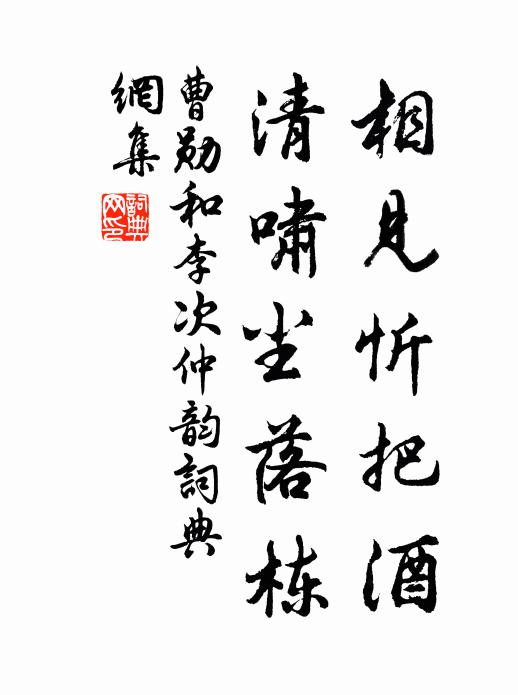 相見忻把酒
清嘯尘落栋
曹勋和李次仲韵詞典
網集
詞典网印